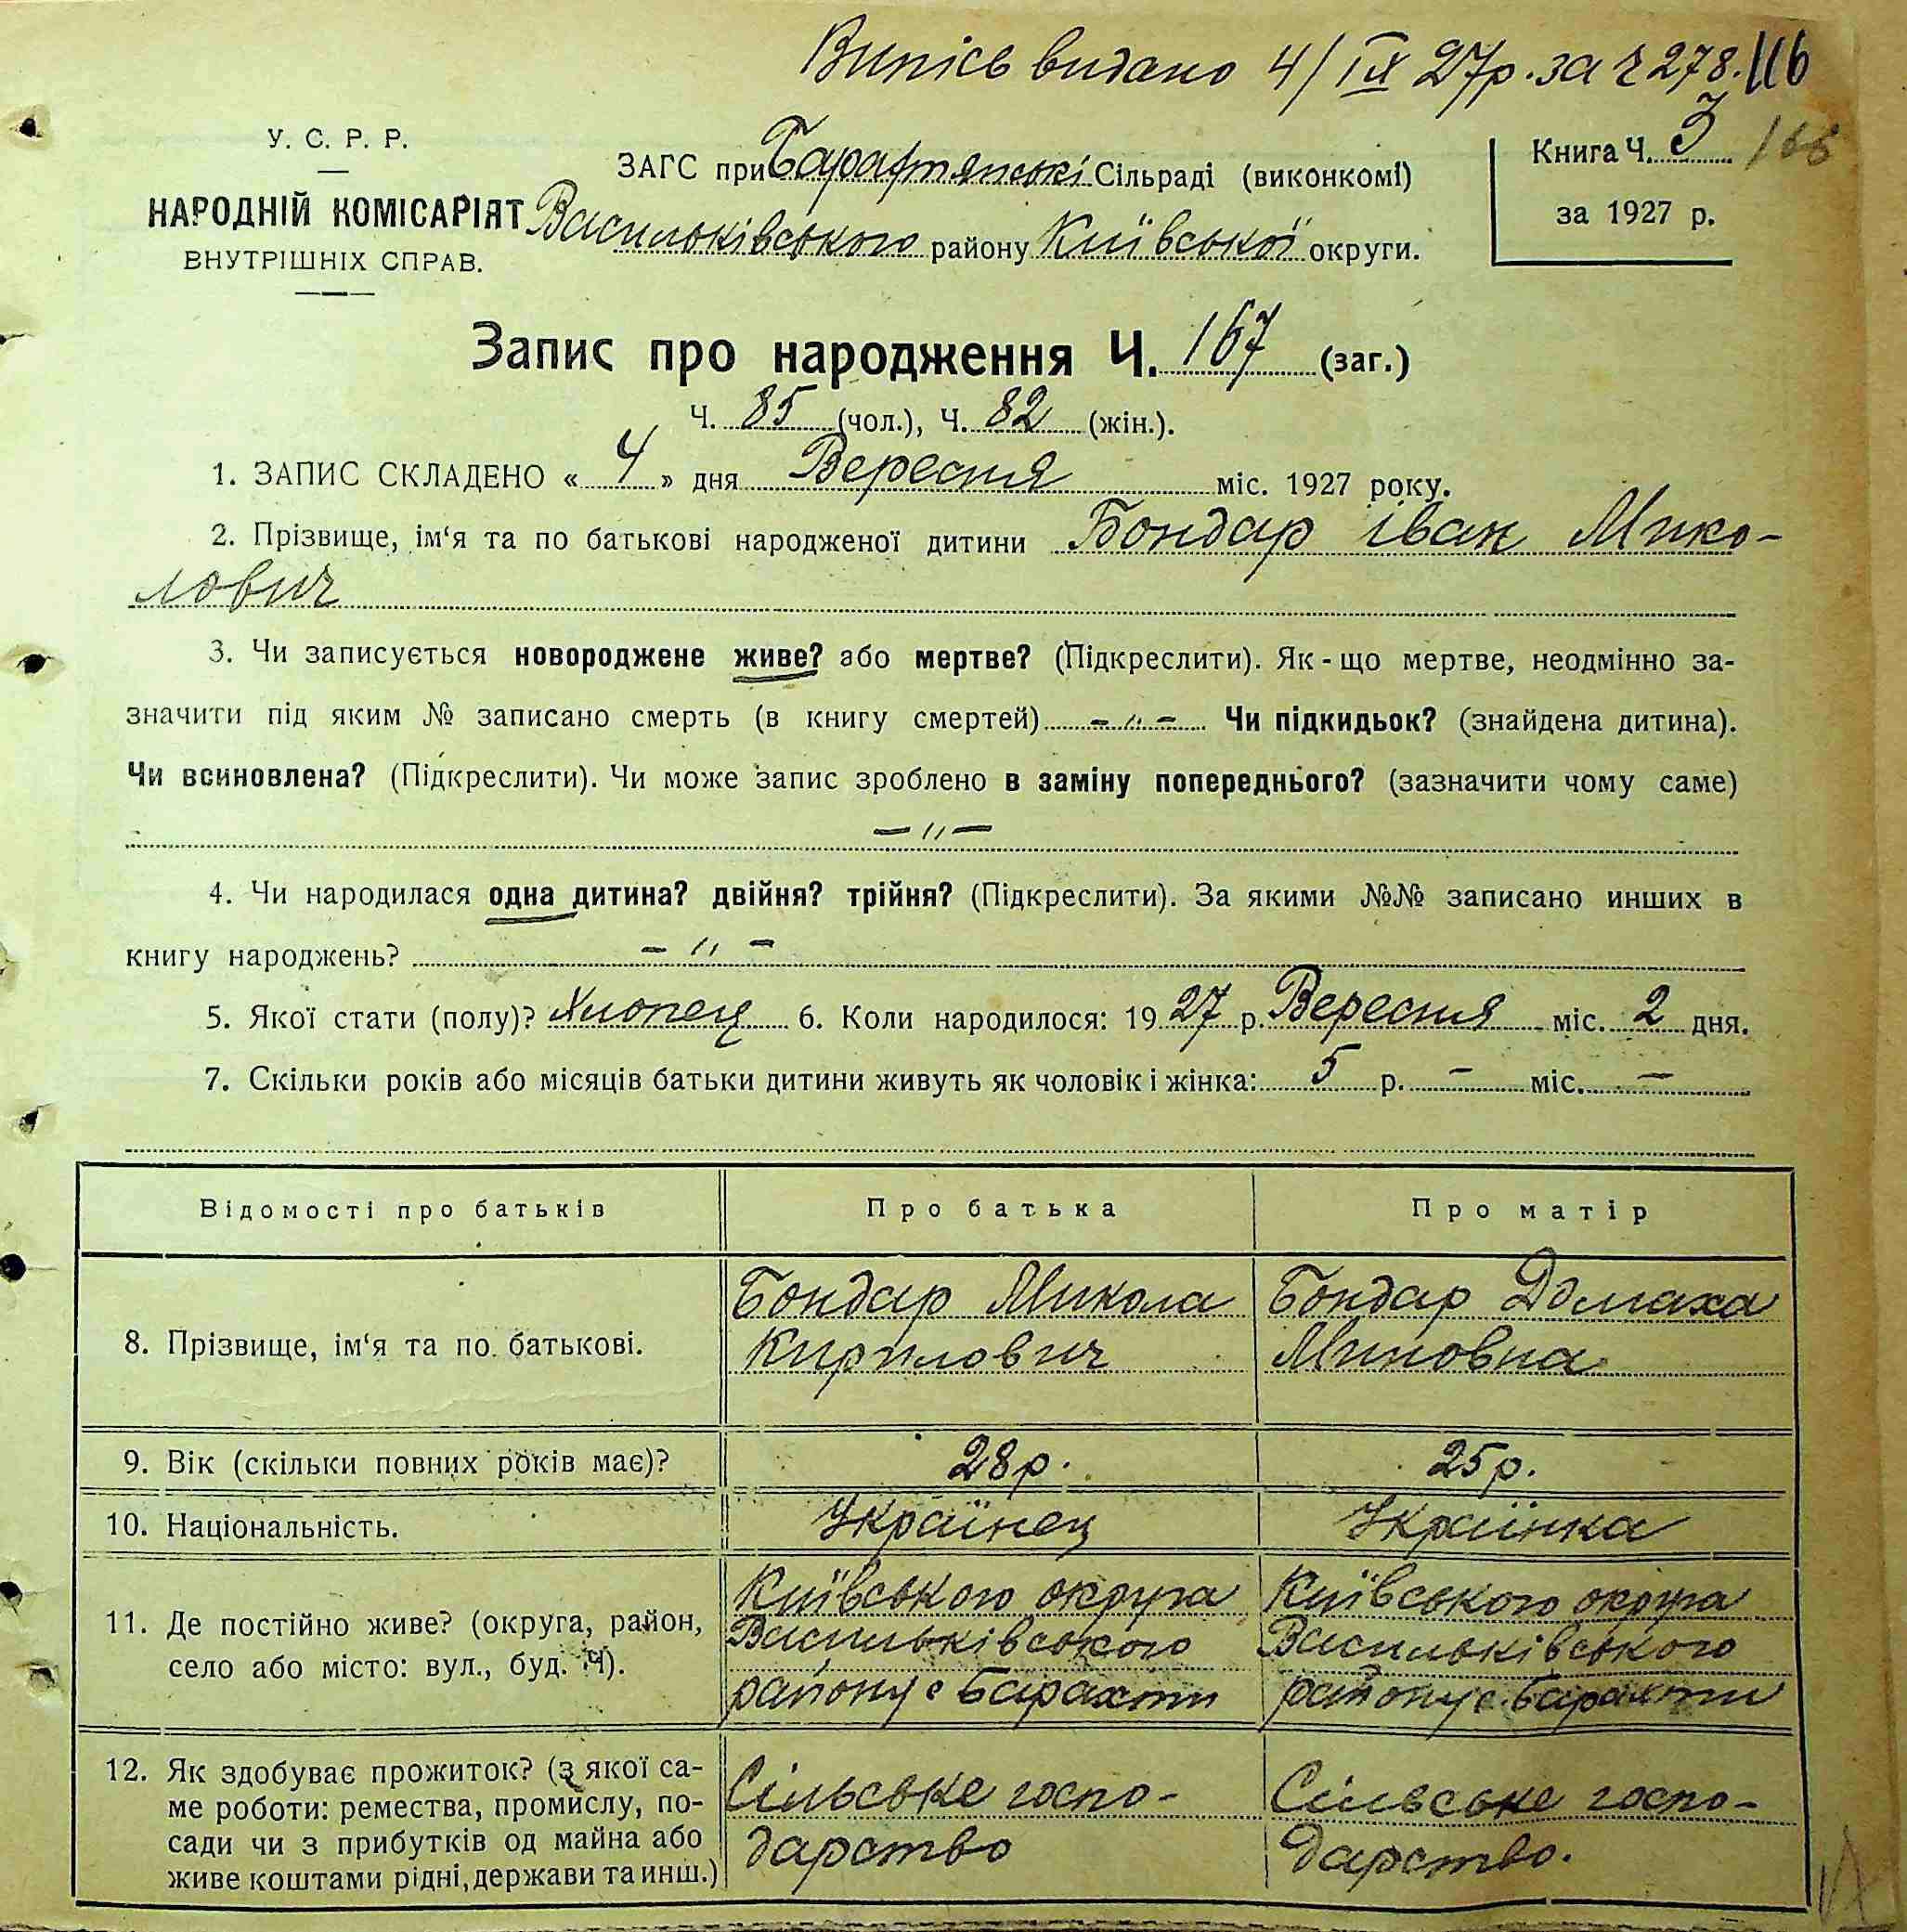 Випісь видано 4/IX 27р. за ч 278. 116
У. С. Р. Р.
НАРОДНІЙ КОМІСАРІЯТ
ВНУТРІШНІХ СПРАВ.
ЗАГС при Барахтянські Сільраді (виконкомі)
Васильківського району Київської округи.
Книга Ч. 3 168
за 1927 р.
Запис про народження Ч. 167 (заг.)
Ч. 85 (чол.), Ч. 82 (жін.).
1. ЗАПИС СКЛАДЕНО « 4 » дня Вересня міс. 1927 року.
2. Прізвище, ім‘я та по батькові народженої дитини Бондар Іван Мико-
лович
3. Чи записується новороджене живе? або мертве? (Підкреслити). Як-що мертве, неодмінно за-
значити під яким № записано смерть (в книгу смертей) – „ – Чи підкидьок? (знайдена дитина).
Чи всиновлена? (Підкреслити). Чи може запис зроблено в заміну попереднього? (зазначити чому саме)
– „ –
4. Чи народилася одна дитина? двійня? трійня? (Підкреслити). За якими №№ записано инших в
книгу народжень? – „ –
5. Якої стати (полу)? Хлопец 6. Коли народилося: 1927 р. Вересня міс. 2 дня.
7. Скільки років або місяців батьки дитини живуть як чоловік і жінка: 5 р. – міс. –
Відомості про батьків Про батька Про матір
8. Прізвище, ім‘я та по батькові.
Бондар Микола
Кирилович
Бондар Домаха
Миновна
9. Вік (скільки повних років має)? 28 р. 25 р.
10. Національність. Українец Українка
11. Де постійно живе? (округа, район,
село або місто: вул., буд. Ч).
Київського округа
Васильківського
району с Барахти
Київського округа
Васильківського
району с. Барахти
12. Як здобуває прожиток? (з якої са-
ме роботи: ремества, промислу, по-
сади чи з прибутків од майна або
живе коштами рідні, держави та инш.)
Сільське госпо-
дарство
Сільське госпо-
дарство.